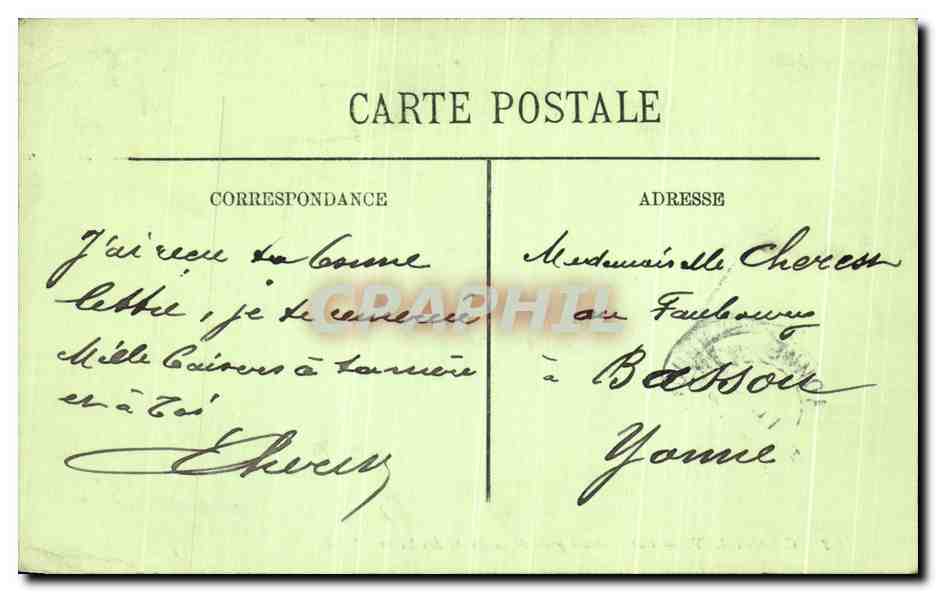 CARTE POSTALE
CORRESPONDANCE
J'ai recu ta bonne
lettre, je te remercie
Mille baisers à ta mère
et à toi
ADRESSE
Mademoiselle
au Faubourg
à Bassou
Yonne
CPAPHIL